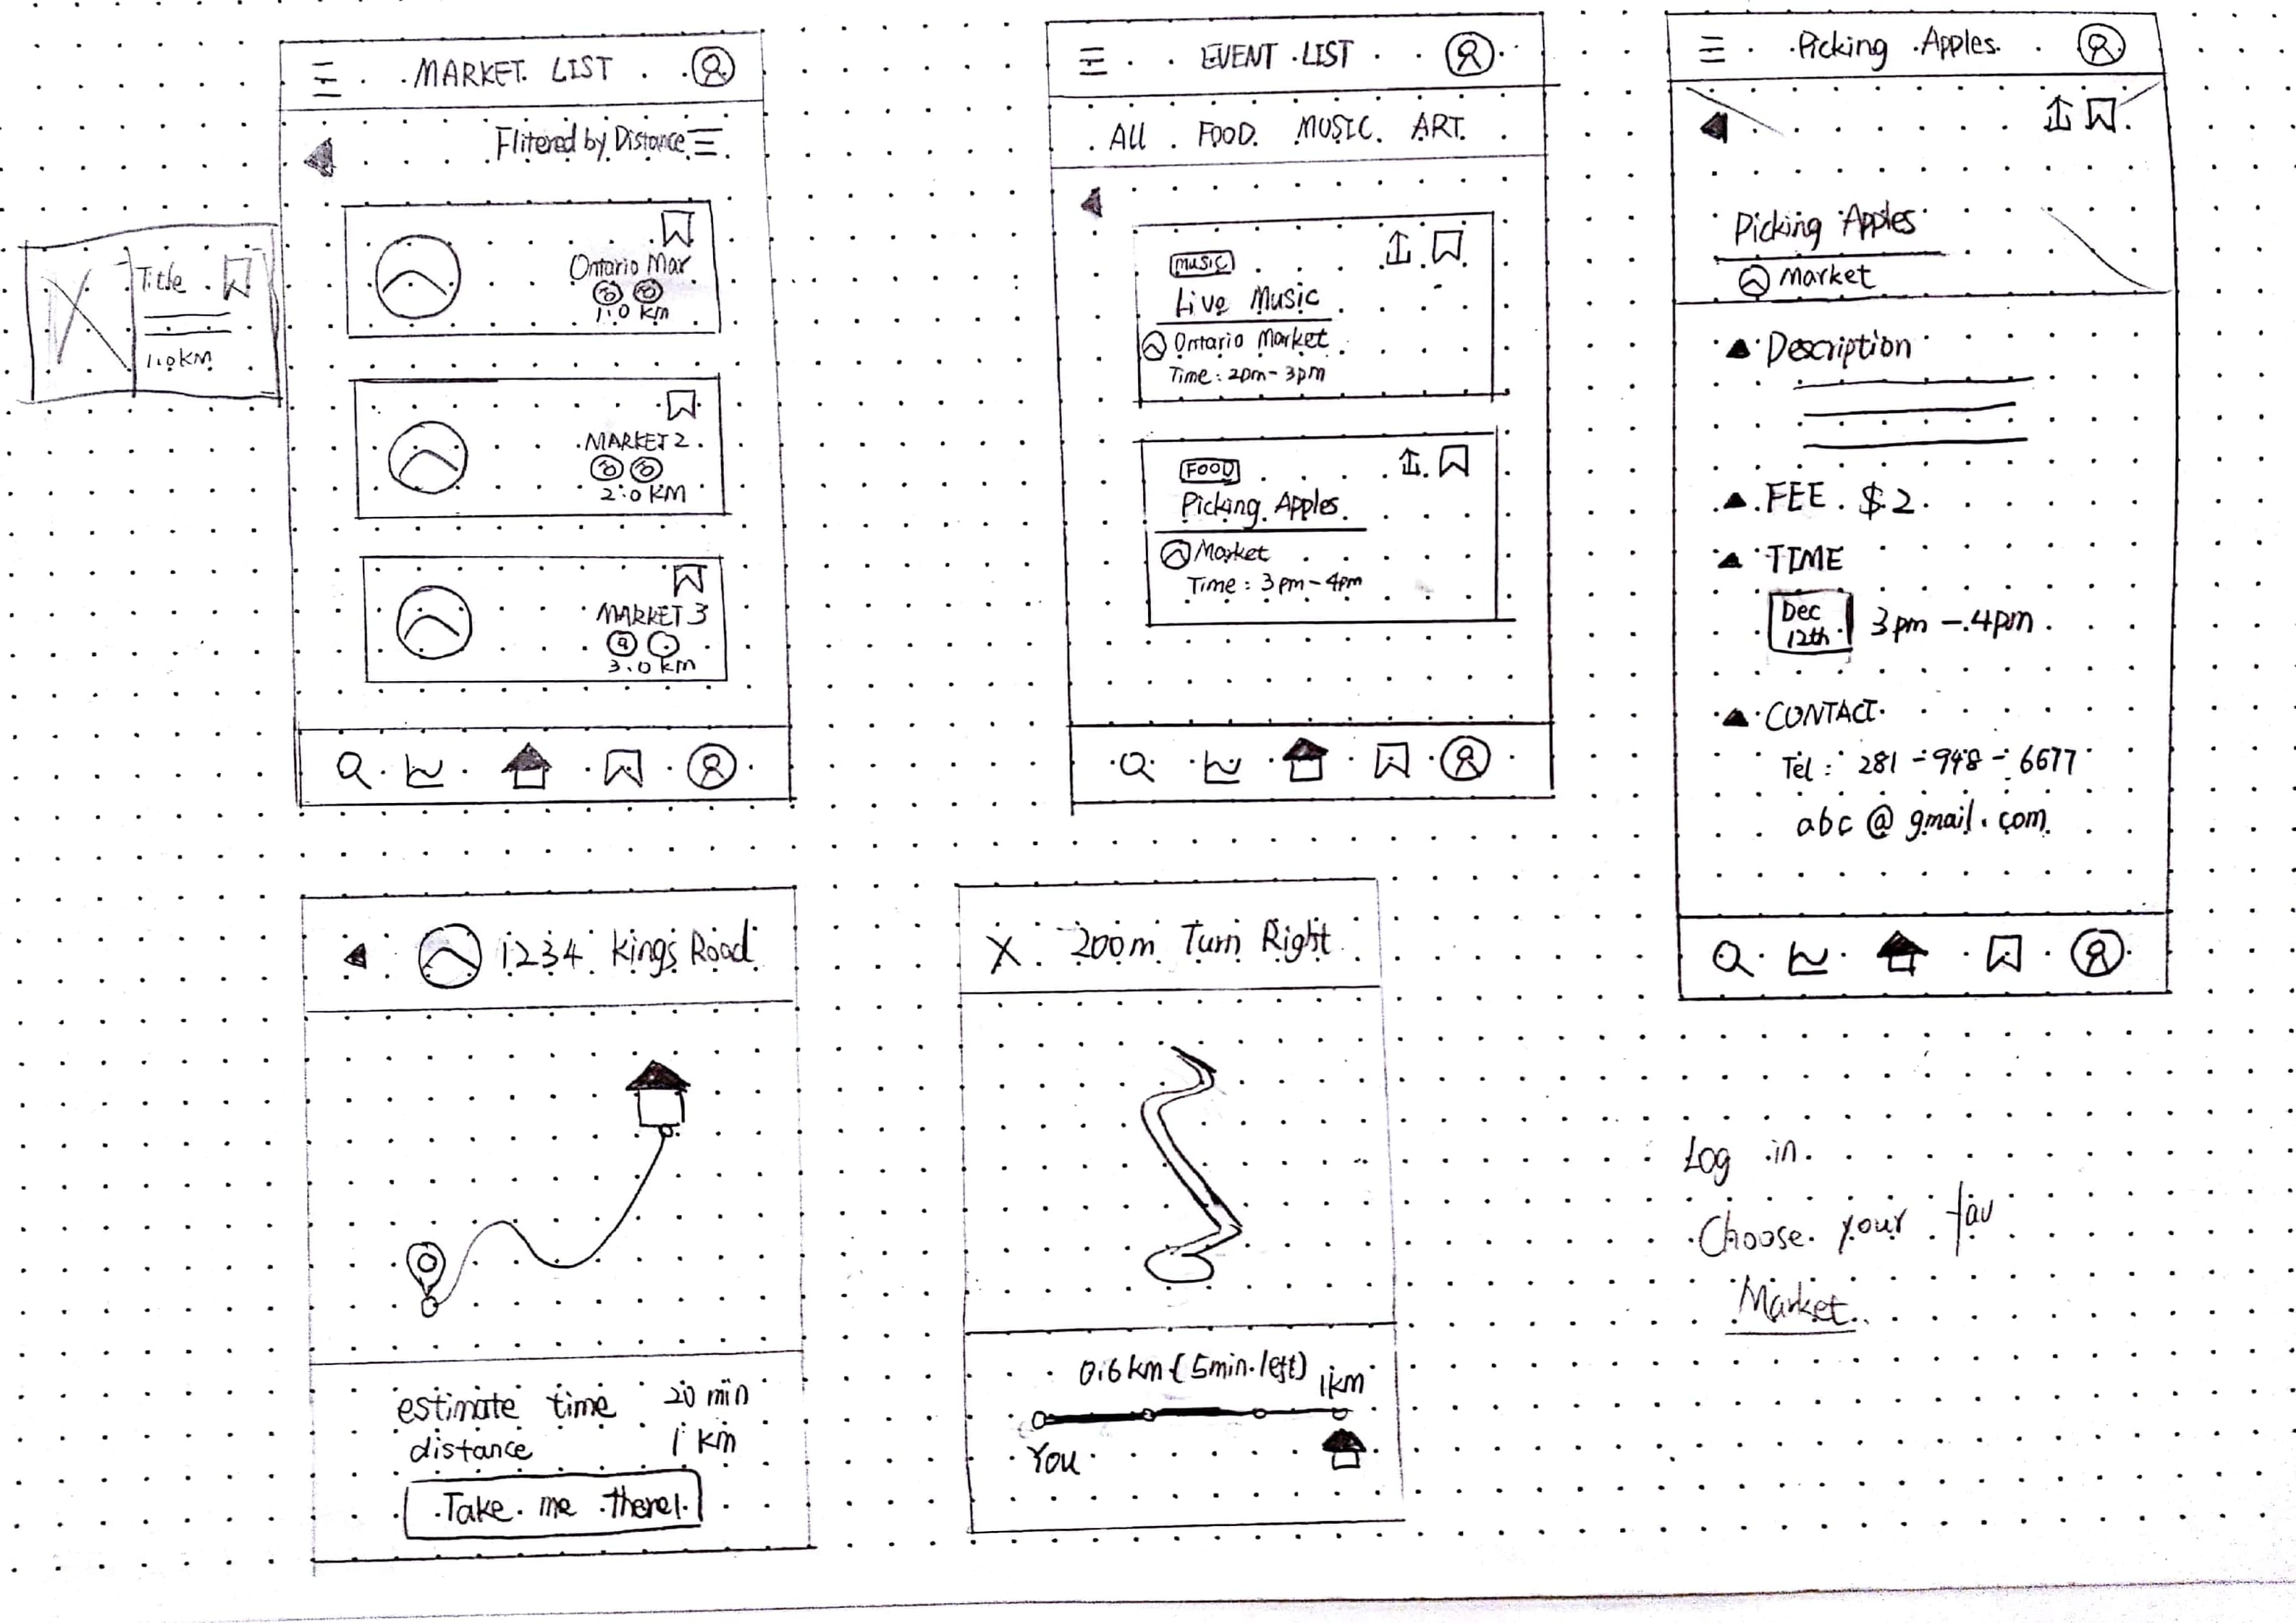 MARKET LIST
Flitered by Distance
Ontario Mar
1.0 km
MARKET 2
2.0 KM
MARKET 3
3.0 km
Title
1.0 KM
EVENT LIST
All FOOD MUSIC ART
MUSIC
Live Music
Ontario Market
Time: 2pm - 3pm
FOOD
Picking Apples
Market
Time: 3pm - 4pm
Picking Apples
Picking Apples
Market
Description
FEE $2
TIME
Dec
12th
3pm - 4pm
CONTACT
Tel: 281-948-6677
abc@gmail.com
1234 Kings Road
estimate time 20 min
distance 1 km
Take me there!
200m Turn Right
0.6km (5min left)
1km
You
Log in
Choose your fav
Market